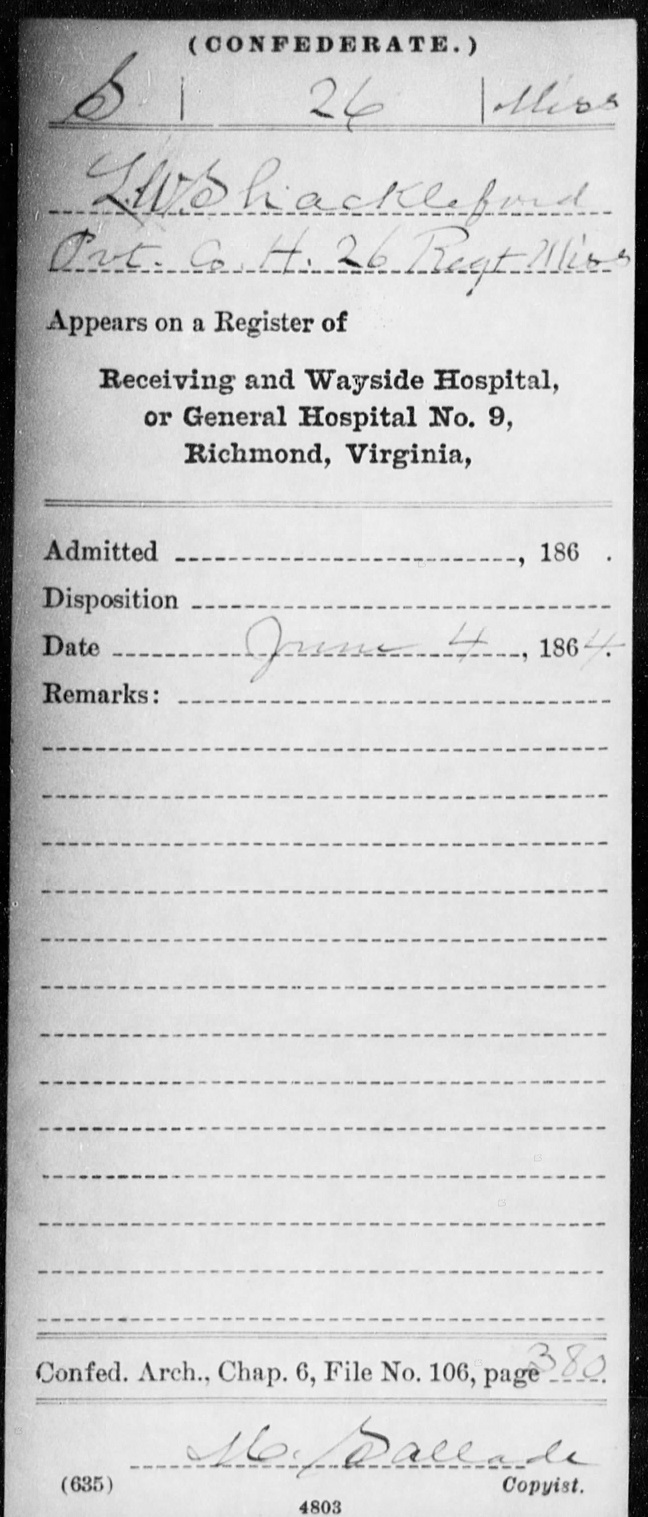 (CONFEDERATE.)
S | 26 | Miss
L.W. Shackleford
Pvt. Co. H. 26 Regt Miss
Appears on a Register of
Receiving and Wayside Hospital,
or General Hospital No. 9,
Richmond, Virginia,
Admitted , 186 .
Disposition
Date June 4 , 1864.
Remarks:
Confed. Arch., Chap. 6, File No. 106, page 380.
M.
(635) Copyist.
4803